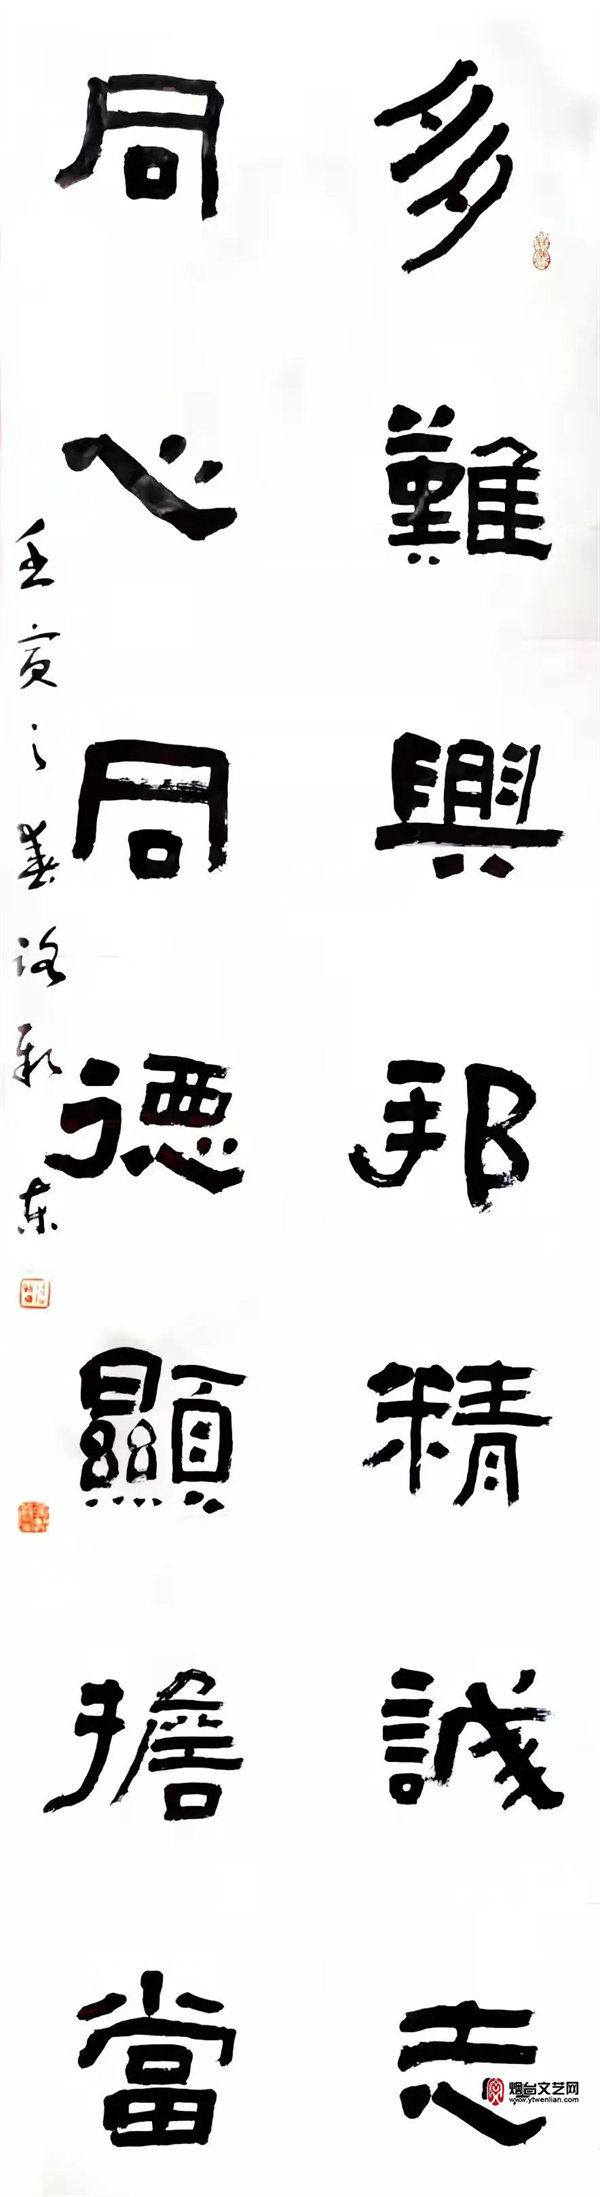 多難興邦精誠志
同心同德顯擔當
壬寅之春 东
烟台文艺网
www.ytwenlian.com